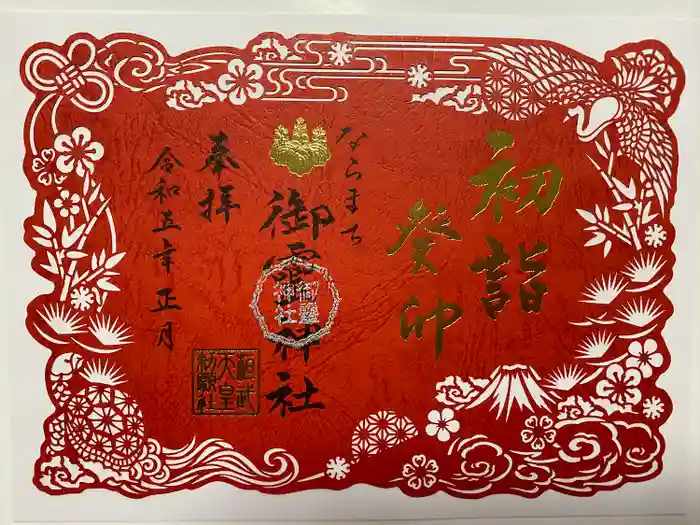 初詣
癸卯
ならまち
御霊神社
奉拝
令和五年正月
桓武
天皇
勅願社
御霊
神社